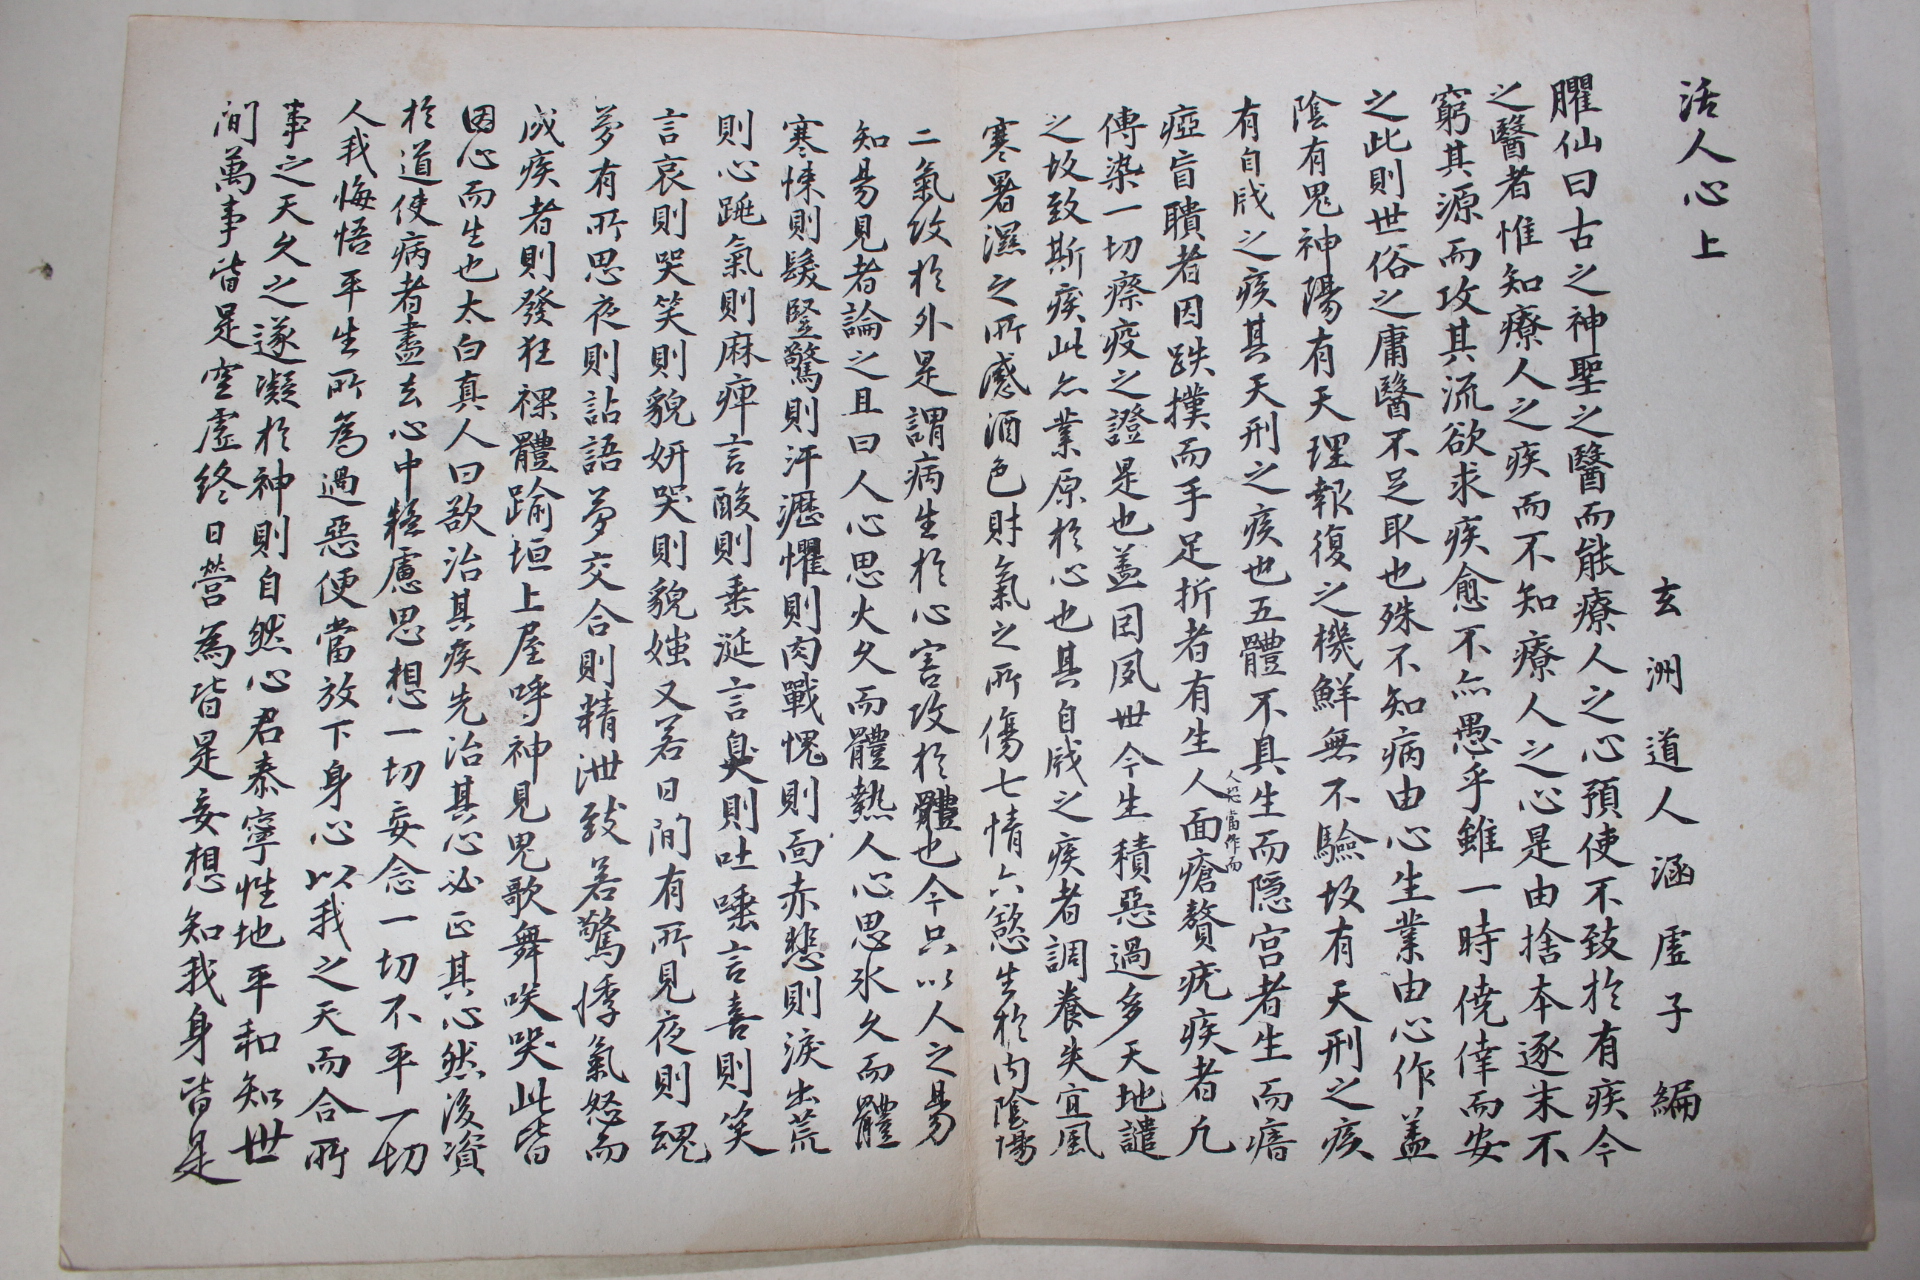 活人心上
玄洲道人涵虛子編
臞仙曰古之神聖之醫而能療人之心預使不致於有疾今
之醫者惟知療人之疾而不知療人之心是由捨本逐末不
窮其源而攻其流欲求疾愈不亦愚乎雖一時僥倖而安
之此則世俗之庸醫不足取也殊不知病由心生業由心作盖
陰有鬼神陽有天理報復之機鮮無不驗故有天刑之疾
有自戕之疾其天刑之疾也五體不具生而隱宮者生而瘖
瘂盲聵者因跌撲而手足折者有生人面瘡贅疣疾者凡
人恐當作而
傳染一切瘵疫之證是也盖因夙世今生積惡過多天地譴
之故致斯疾此亦業原於心也其自戕之疾者調養失宜風
寒暑濕之所感酒色財氣之所傷七情六慾生於內陰陽
二氣攻於外是謂病生於心害攻於體也今只以人之易
知易見者論之且曰人心思火久而體熱人心思氷久而體
寒悚則髮竪驚則汗瀝懼則肉戰愧則面赤悲則淚出荒
則心跳氣則麻痺言酸則垂涎言臭則吐唾言喜則笑
言哀則哭笑則貌妍哭則貌媸又若日間有所見夜則魂
夢有所思夜則詀語夢交合則精泄致若驚悸氣怒而
成疾者則發狂裸體踰垣上屋呼神見鬼歌舞唉哭此皆
因心而生也太白真人曰欲治其疾先治其心必正其心然後資
於道使病者盡去心中疑慮思想一切妄念一切不平一切
人我悔悟平生所為過惡便當放下身心以我之天而合所
事之天久之遂凝於神則自然心君泰寧性地平和知世
間萬事皆是空虛終日營為皆是妄想知我身皆是